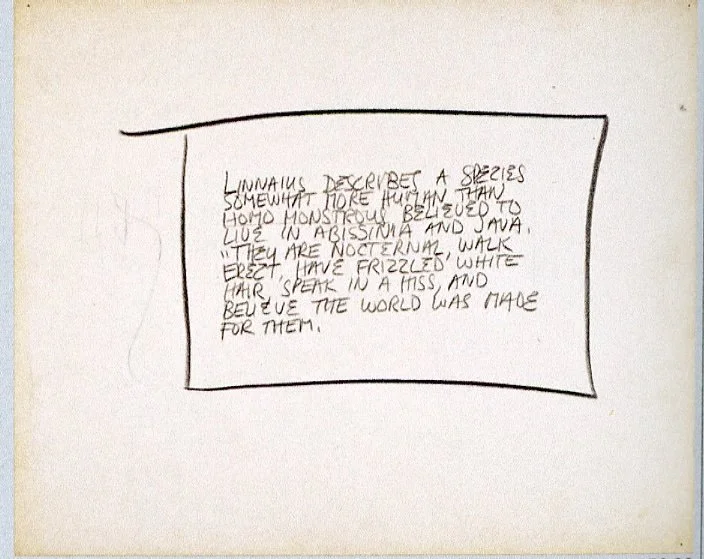 LINNAIUS DESCRYBES A SPECIES
SOMEWHAT MORE HUMAN THAN
HOMO MONSTROUS BELIEVED TO
LIVE IN ABISSINIA AND JAVA.
"THEY ARE NOCTERNAL, WALK
ERECT, HAVE FRIZZLED WHITE
HAIR, SPEAK IN A HISS, AND
BELIEVE THE WORLD WAS MADE
FOR THEM.